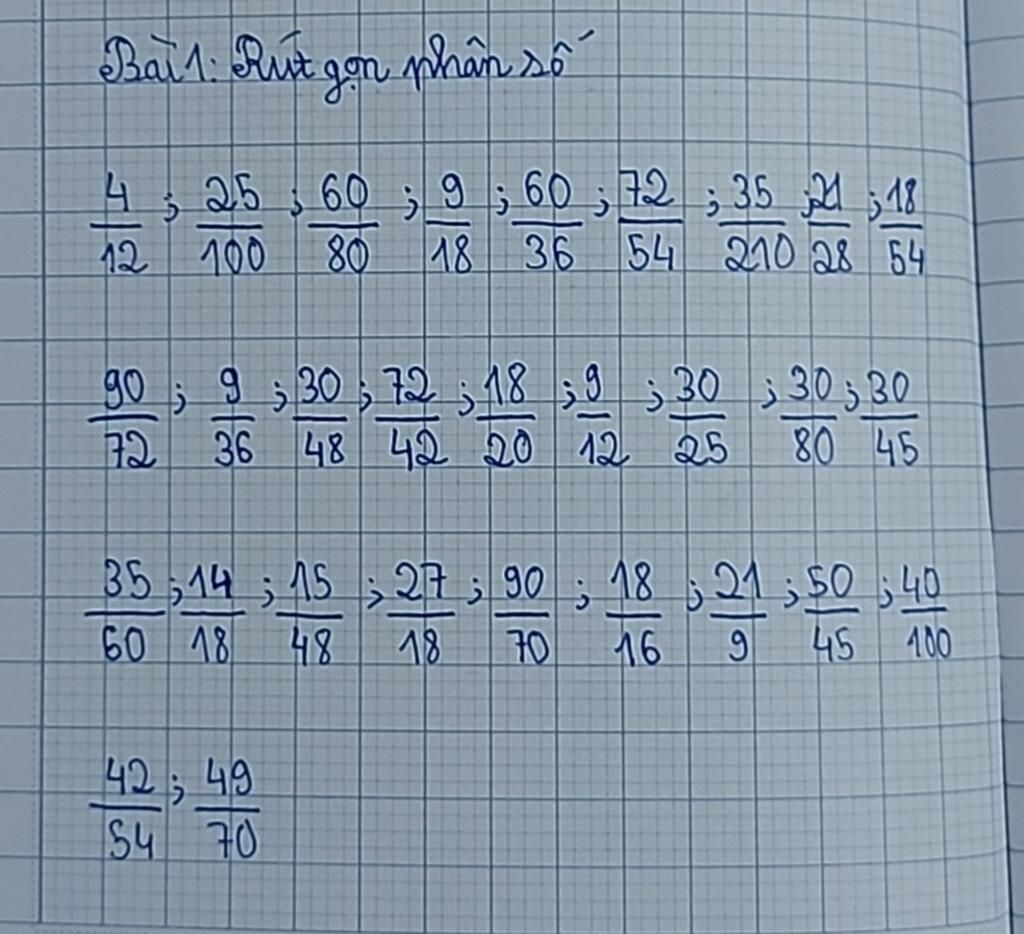 Bài 1: Rút gọn phân số
4/12 ; 25/100 ; 60/80 ; 9/18 ; 60/36 ; 72/54 ; 35/210 ; 21/28 ; 18/54
90/72 ; 9/36 ; 30/48 ; 72/42 ; 18/20 ; 9/12 ; 30/25 ; 30/80 ; 30/45
35/60 ; 14/18 ; 15/48 ; 27/18 ; 90/70 ; 18/16 ; 21/9 ; 50/45 ; 40/100
42/54 ; 49/70